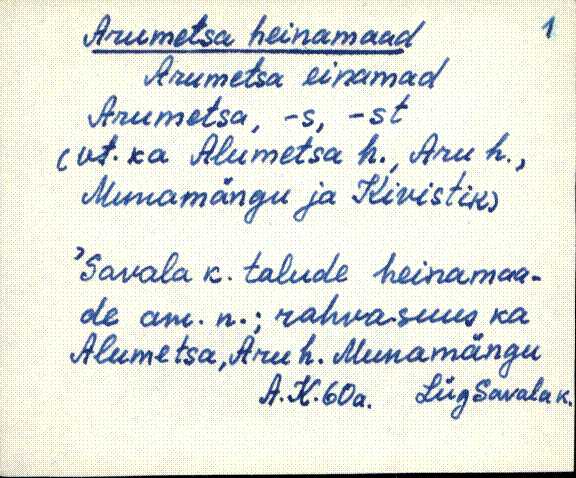 1
Arumetsa heinamaad
Arumetsa einamad
Arumetsa, -s, -st
(vt. ka Alumetsa h., Aru h.,
Munamängu ja Kivistik)
"Savala k. talude heinamaa-
de am. n.; rahvasuus ka
Alumetsa, Aru h. Munamängu
A.K. 60a. Lüg Savala k.